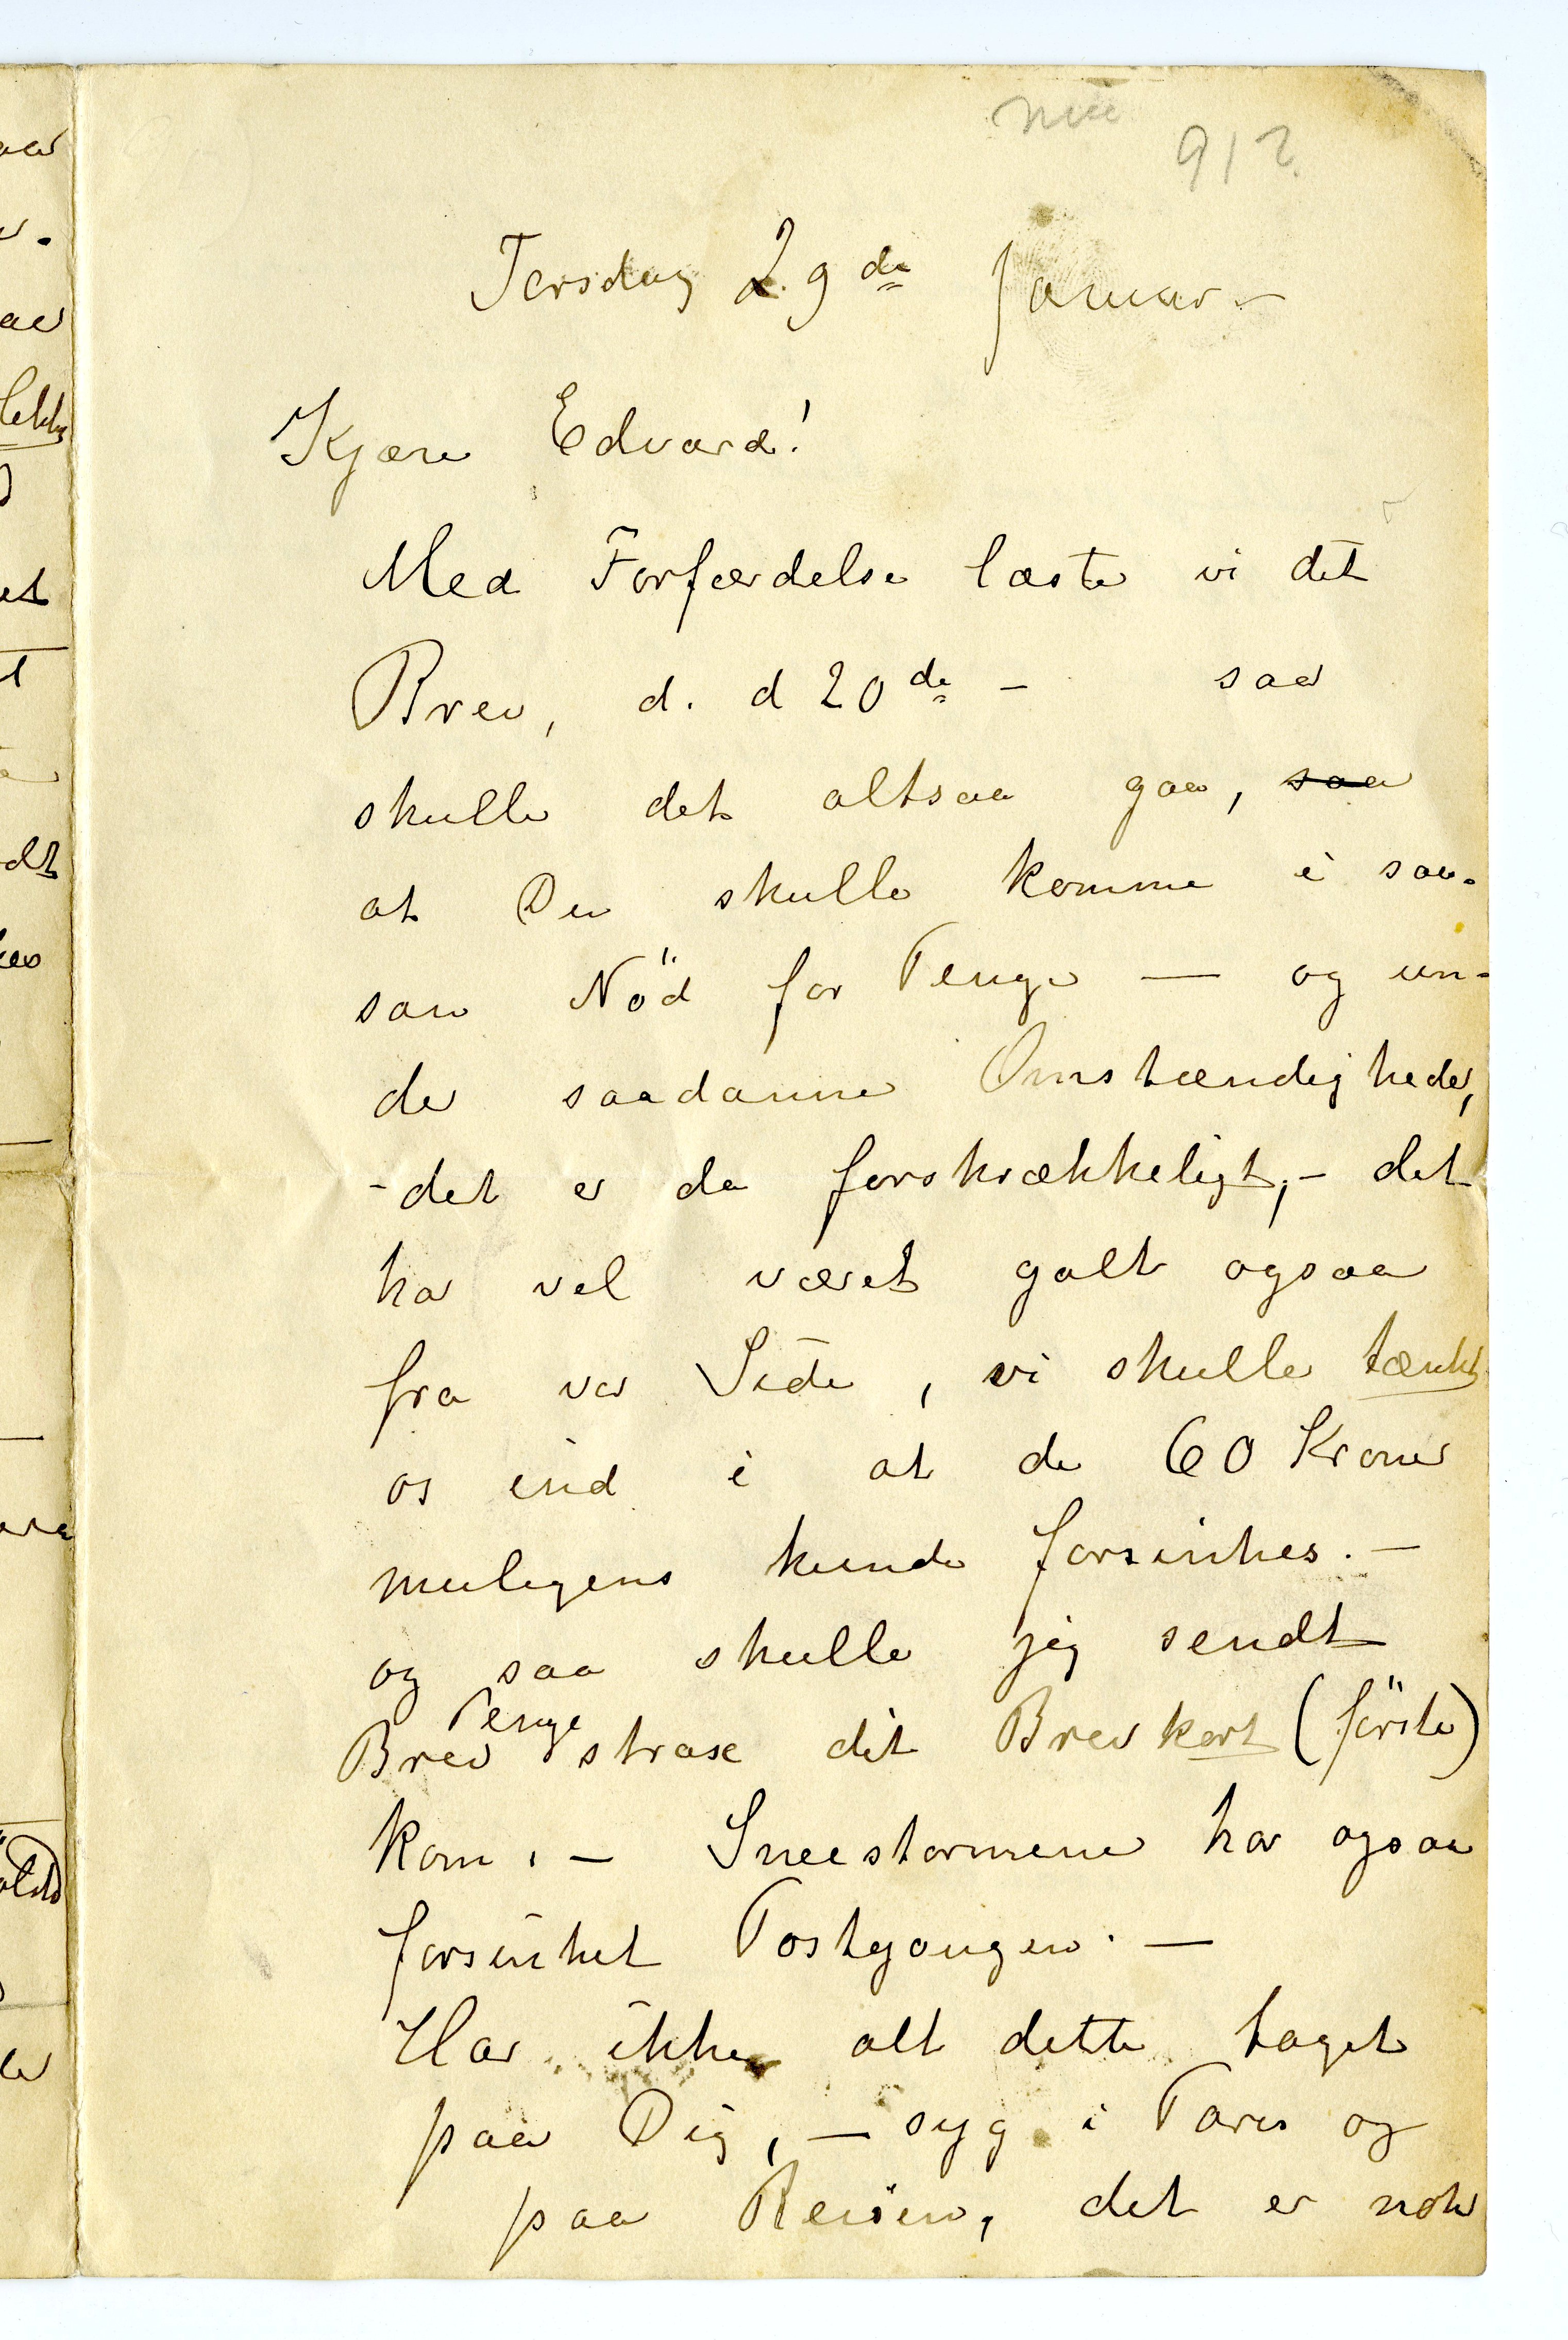 912.
Torsdag 29de Januar –
Kjære Edvard!
Med Forfærdelse læste vi dit
Brev, d. d 20de – saa
skulle det altsaa gaa, saa
at Du skulle komme i saa-
san Nöd for Penge — og un-
der saadanne Omstændigheder,
– det er da forskrækkeligt, – det
har vel været galt ogsaa
fra vor Side, vi skulle tænkt
os ind i at de 60 Kroner
muligens kunde forsinkes. –
og saa skulle jeg sendt
Penge
Brev strax dit Brevkort (förste)
kom. – Sneestormene har ogsaa
forsinket Postgangen. —
Har ikke alt dette taget
paa Dig, — syg i Paris og
paa Reisen, det er nok